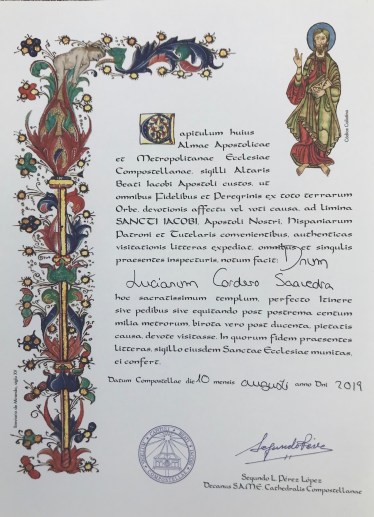 Capitulum huius
Almae Apostolicae
et Metropolitanae Ecclesiae
Compostellanae, sigilli Altaris
Beati Iacobi Apostoli custos, ut
omnibus Fidelibus et Peregrinis ex toto terrarum
Orbe, devotionis affectu vel voti causa, ad limina
SANCTI IACOBI, Apostoli Nostri, Hispaniarum
Patroni et Tutelaris convenientibus, authenticas
visitationis litteras expediat, omnibus et singulis
praesentes inspecturis, notum facit: Dnum
Lucianum Cordero Saavedra
hoc sacratissimum templum, perfecto Itinere
sive pedibus sive equitando post postrema centum
milia metrorum, birota vero post ducenta, pietatis
causa, devote visitasse. In quorum fidem praesentes
litteras, sigillo eiusdem Sanctae Ecclesiae munitas,
ei confert.
Datum Compostellae die 10 mensis augusti anno Dni 2019
Segundo L. Pérez López
Decanus S.A.M.E. Cathedralis Compostellanae
Codice Calixtino